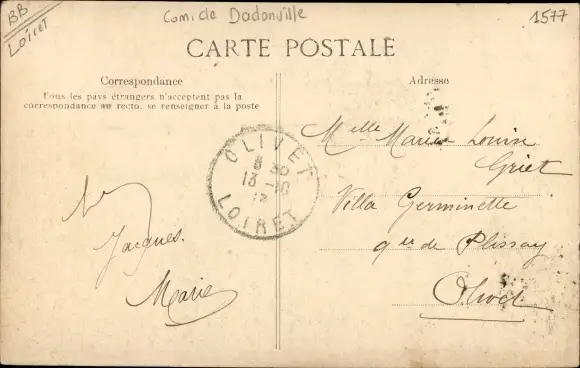 BB
Loiret
Com. de Dadonville
1577
CARTE POSTALE
Correspondance
Tous les pays étrangers n'acceptent pas la
correspondance au recto, se renseigner à la poste
Jacques.
Marie
OLIVET
13
LOIRET
Adresse
Melle Marie-Louise
Griet
Villa Germinette
de Plissay
Olivet